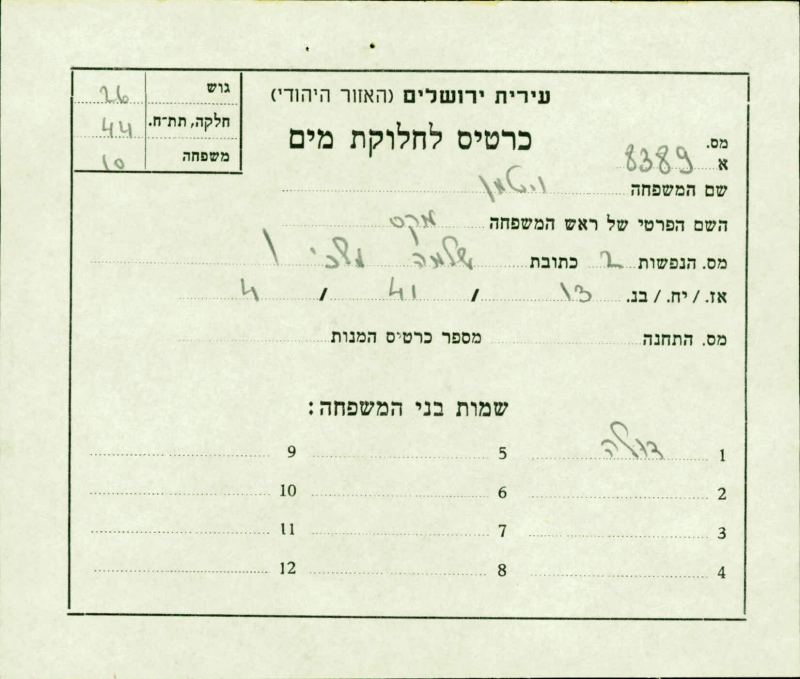 עירית ירושלים (האזור היהודי)
כרטיס לחלוקת מים
גוש 26
חלקה, תת-ח. 44
משפחה 10
מס.
א 8389
שם המשפחה ויטמן
השם הפרטי של ראש המשפחה מקס
מס. הנפשות 2 כתובת שלמה מלכי 1
אז. / יח. / בנ. 13 / 41 / 4
מס. התחנה מספר כרטיס המנות
שמות בני המשפחה:
1 5 9
2 6 10
3 7 11
4 8 12